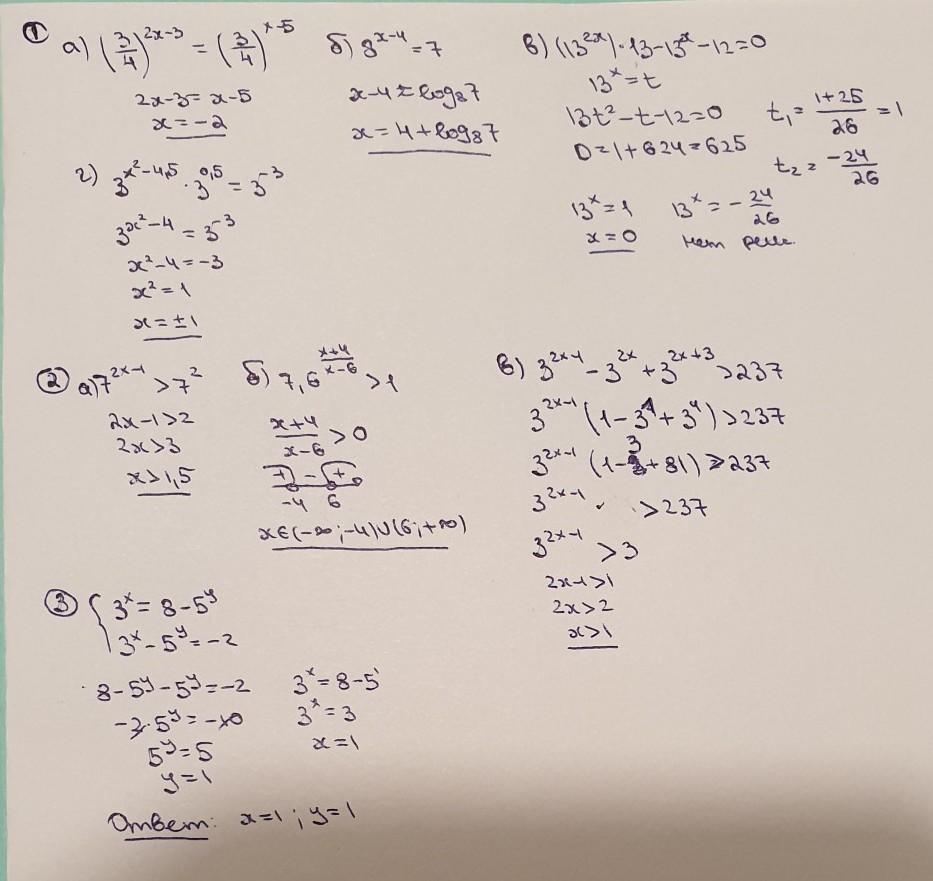 ① а) (3/4)^(2x-3) = (3/4)^(x-5)
2x-3 = x-5
x = -2
б) 8^(x-4) = 7
x-4 = log₈7
x = 4 + log₈7
в) (13^(2x))·13 - 13^x - 12 = 0
13^x = t
13t² - t - 12 = 0
D = 1 + 624 = 625
t₁ = (1+25)/26 = 1
t₂ = -24/26
13^x = 1   13^x = -24/26
x = 0   нет реш.
г) 3^(x²-4,5) · 3^(0,5) = 3^(-3)
3^(x²-4) = 3^(-3)
x² - 4 = -3
x² = 1
x = ±1
② а) 7^(2x-1) > 7²
2x-1 > 2
2x > 3
x > 1,5
б) 7,6^((x+4)/(x-6)) > 1
(x+4)/(x-6) > 0
+ - +
-4 6
x∈(-∞; -4)∪(6; +∞)
в) 3^(2x-1) - 3^(2x) + 3^(2x+3) > 237
3^(2x-1) (1 - 3^1 + 3^4) > 237
3^(2x-1) (1 - 3 + 81) > 237
3^(2x-1) · > 237
3^(2x-1) > 3
2x-1 > 1
2x > 2
x > 1
③ { 3^x = 8 - 5^y
3^x - 5^y = -2
8 - 5^y - 5^y = -2
-2·5^y = -10
5^y = 5
y = 1
3^x = 8 - 5¹
3^x = 3
x = 1
Ответ: x=1; y=1